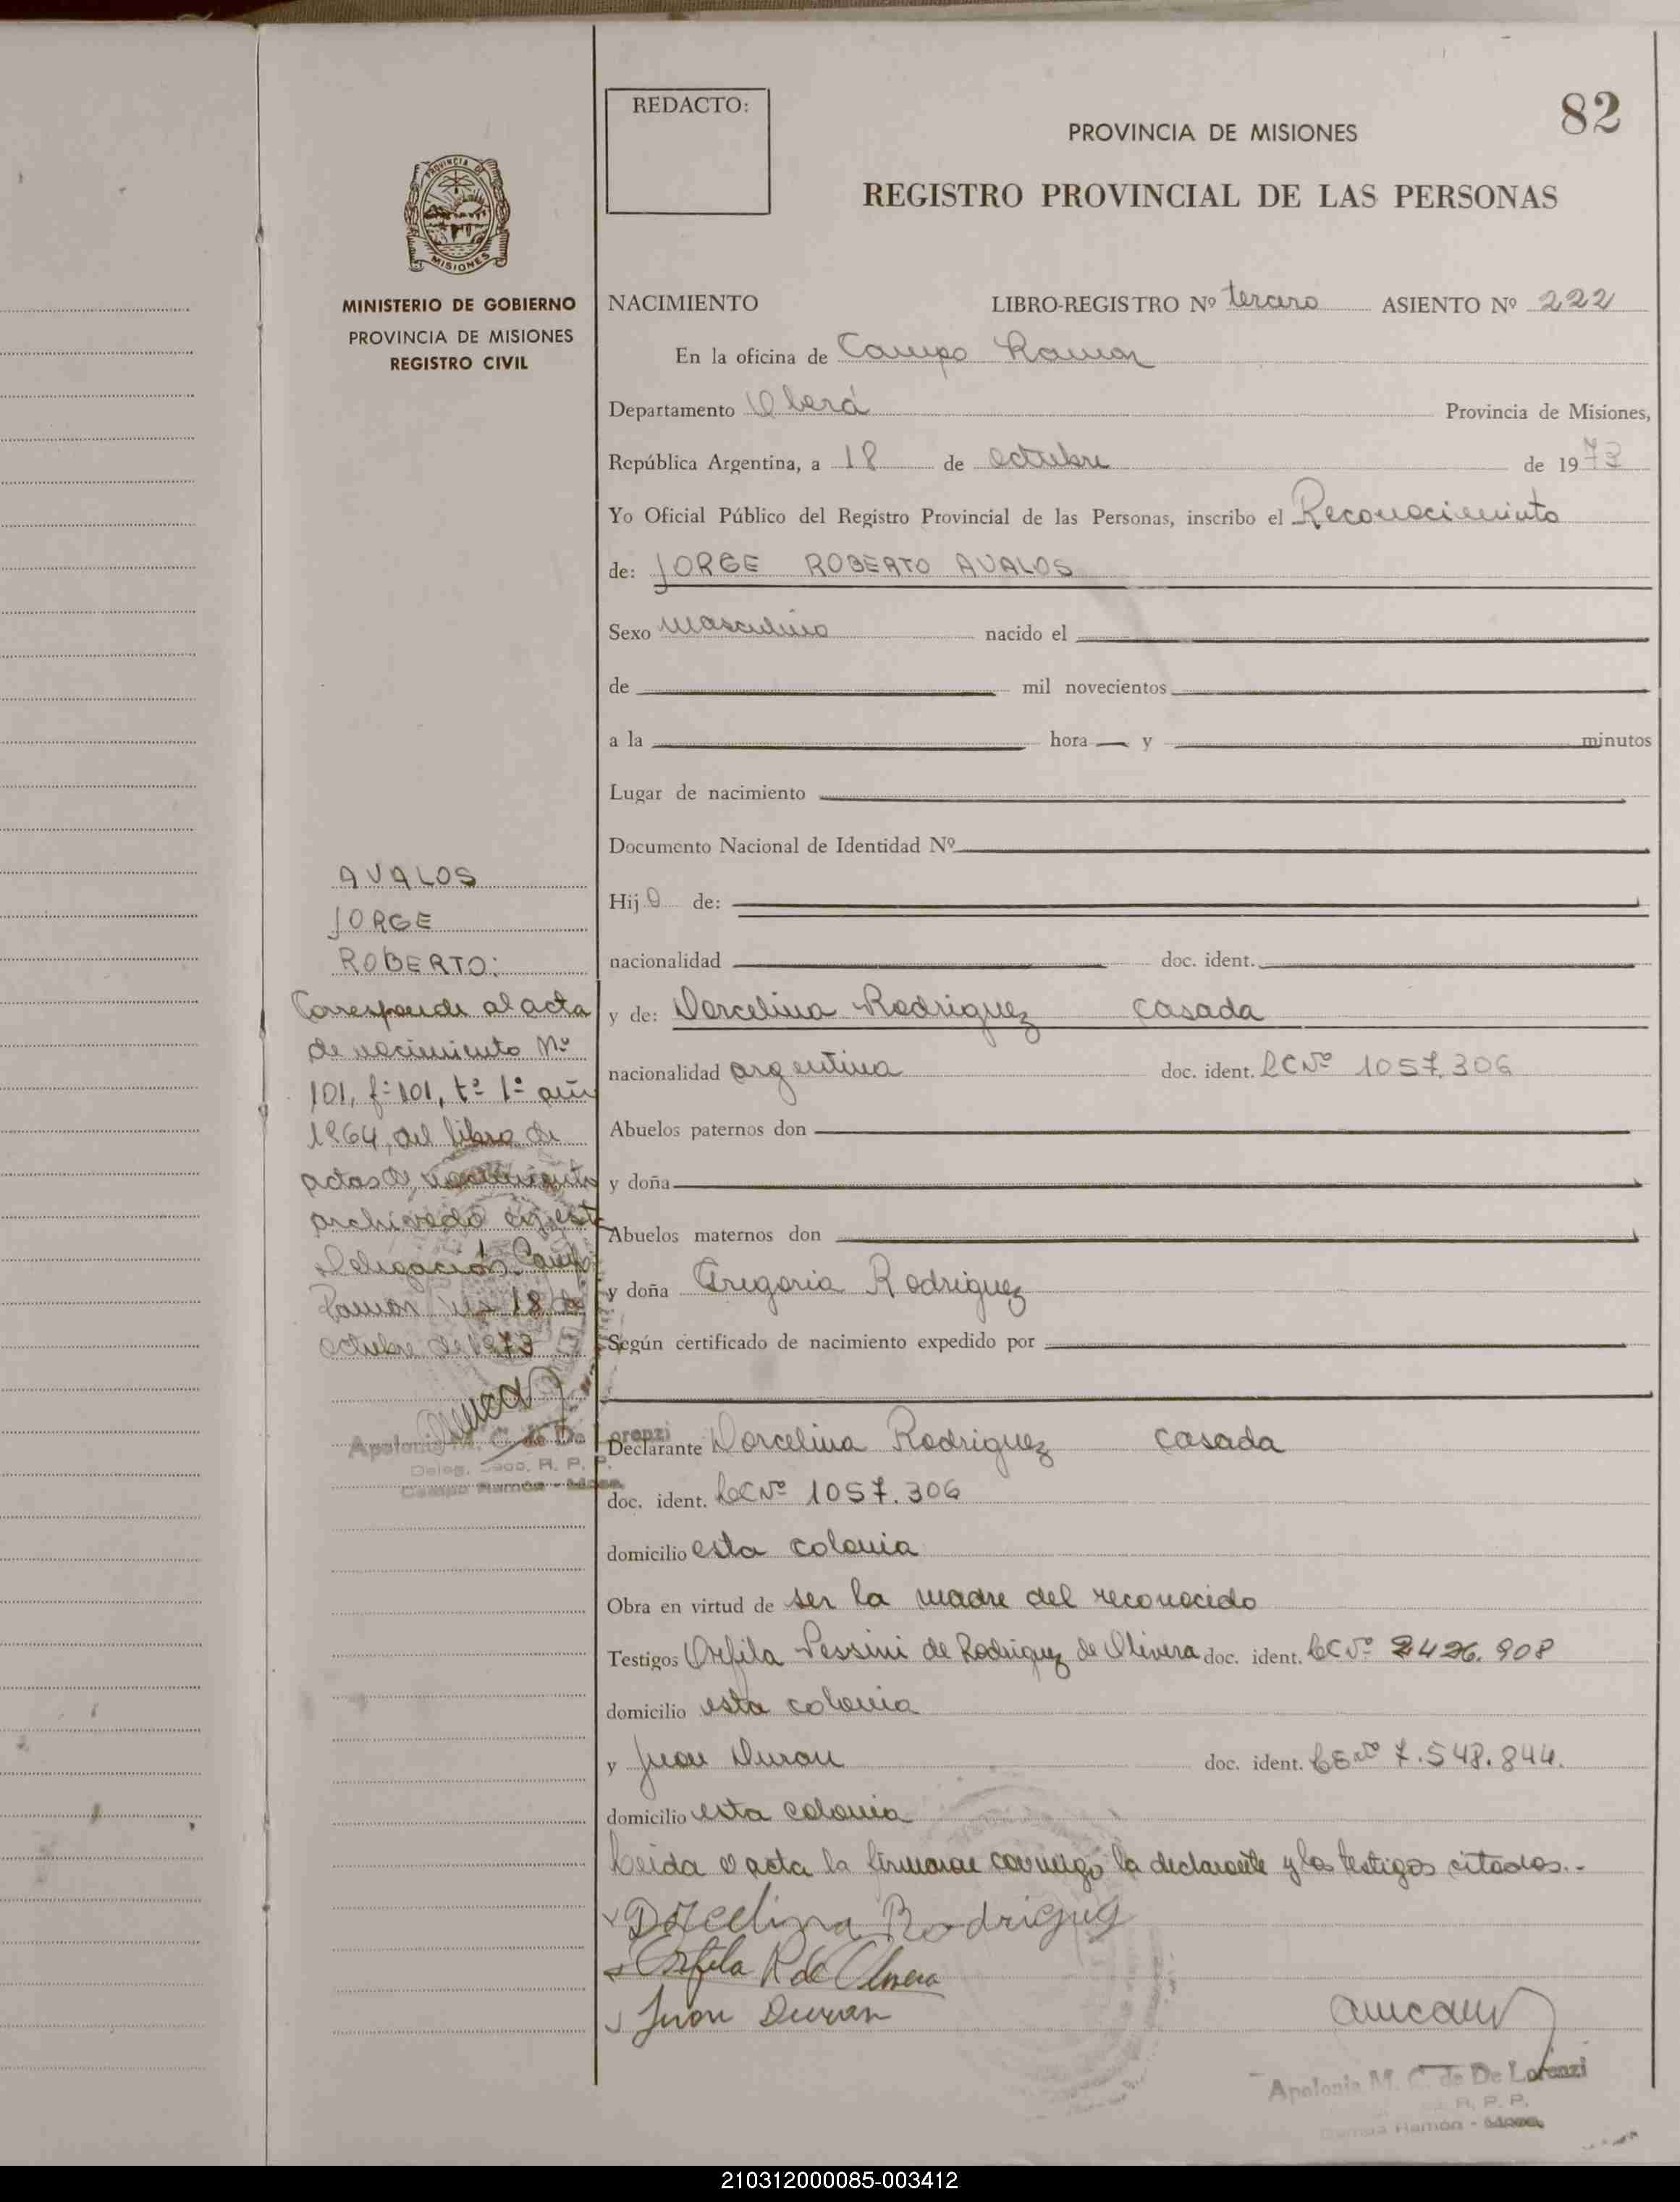 82
REDACTO:
PROVINCIA DE MISIONES
REGISTRO PROVINCIAL DE LAS PERSONAS
PROVINCIA DE
MISIONES
MINISTERIO DE GOBIERNO
PROVINCIA DE MISIONES
REGISTRO CIVIL
NACIMIENTO LIBRO-REGISTRO Nº tercero ASIENTO Nº 222
En la oficina de Campo Ramon
Departamento Oberá Provincia de Misiones,
República Argentina, a 18 de octubre de 1973
Yo Oficial Público del Registro Provincial de las Personas, inscribo el Reconocimiento
de: JORGE ROBERTO AVALOS
Sexo masculino nacido el
de mil novecientos
a la hora y minutos
Lugar de nacimiento
Documento Nacional de Identidad Nº
Hijo de:
nacionalidad doc. ident.
y de: Dorcelina Rodriguez casada
nacionalidad argentina doc. ident. LC Nº 1057.306
Abuelos paternos don
y doña
Abuelos maternos don
y doña Gregoria Rodriguez
Según certificado de nacimiento expedido por
Declarante Dorcelina Rodriguez casada
doc. ident. LC Nº 1057.306
domicilio esta colonia
Obra en virtud de ser la madre del reconocido
Testigos Orfila Pessini de Rodriguez de Olivera doc. ident. LC Nº 2426.908
domicilio esta colonia
y Juan Duran doc. ident. LE Nº 7.548.844.
domicilio esta colonia
Leida el acta la firman conmigo la declarante y los testigos citados.-
Dorcelina Rodriguez
Orfila R de Olivera
Juan Duran
Apolonia M. C. de De Lorenzi
R. P. P.
Campo Ramón - Mnes.
AVALOS
JORGE
ROBERTO:
Corresponde al acta
de nacimiento Nº
101, fº 101, tº 1º año
1964, del libro de
actas de nacimiento
archivado en esta
Delegación. Campo
Ramon 18 de
octubre de 1973
Apolonia M. C. de De Lorenzi
Deleg. R. P. P.
Campo Ramón - Mnes.
210312000085-003412